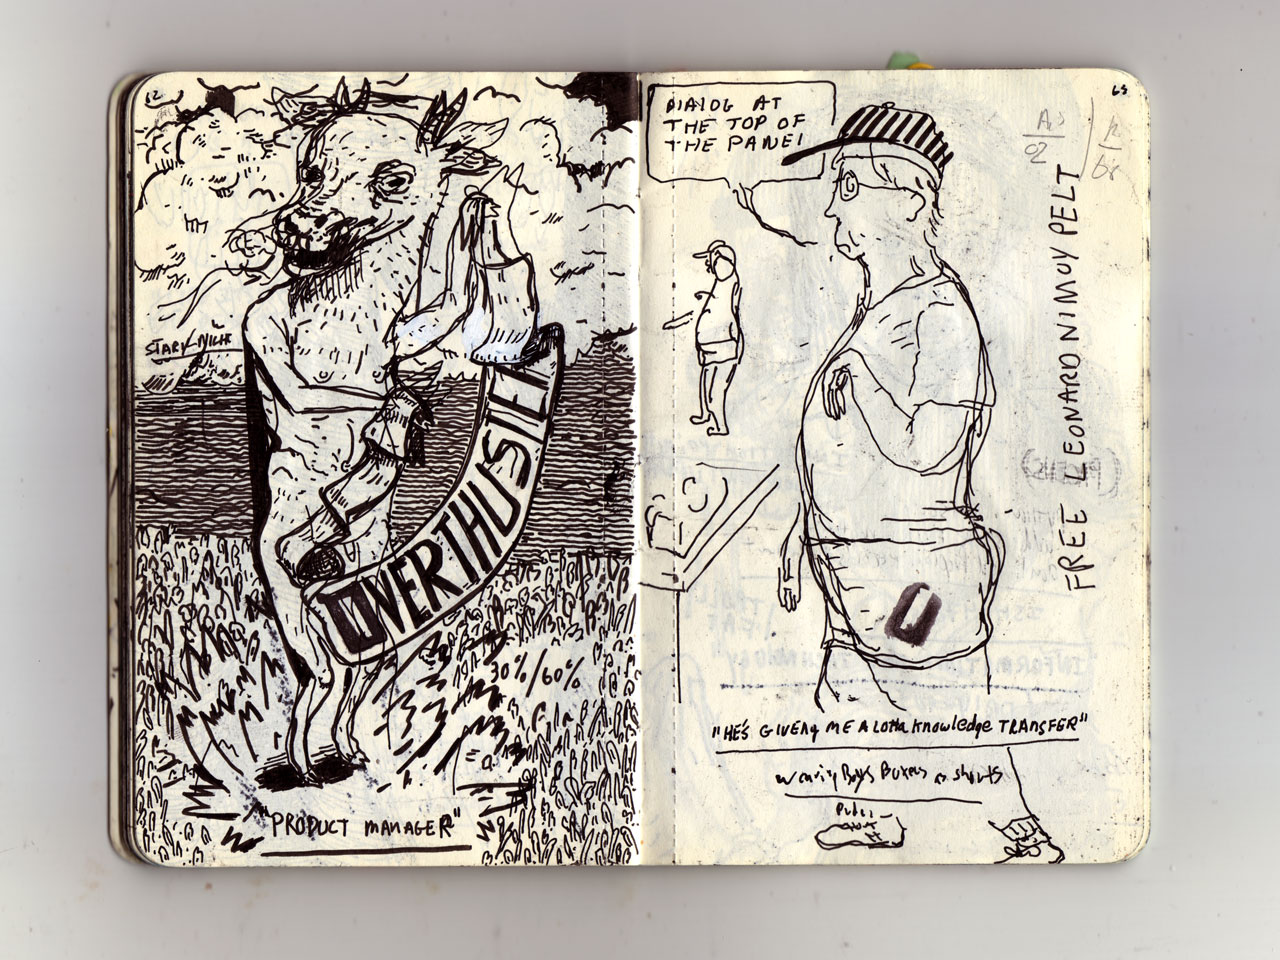 62
STARY NIGHT
OVERTHUSTER
30%/60%
"PRODUCT MANAGER"
DIALOG AT
THE TOP OF
THE PANEL
FREE LEONARD NIMOY PELT
"HE'S GIVENg ME A LOTta knowledge TRANSFER"
wearing Boys Boxers as shorts